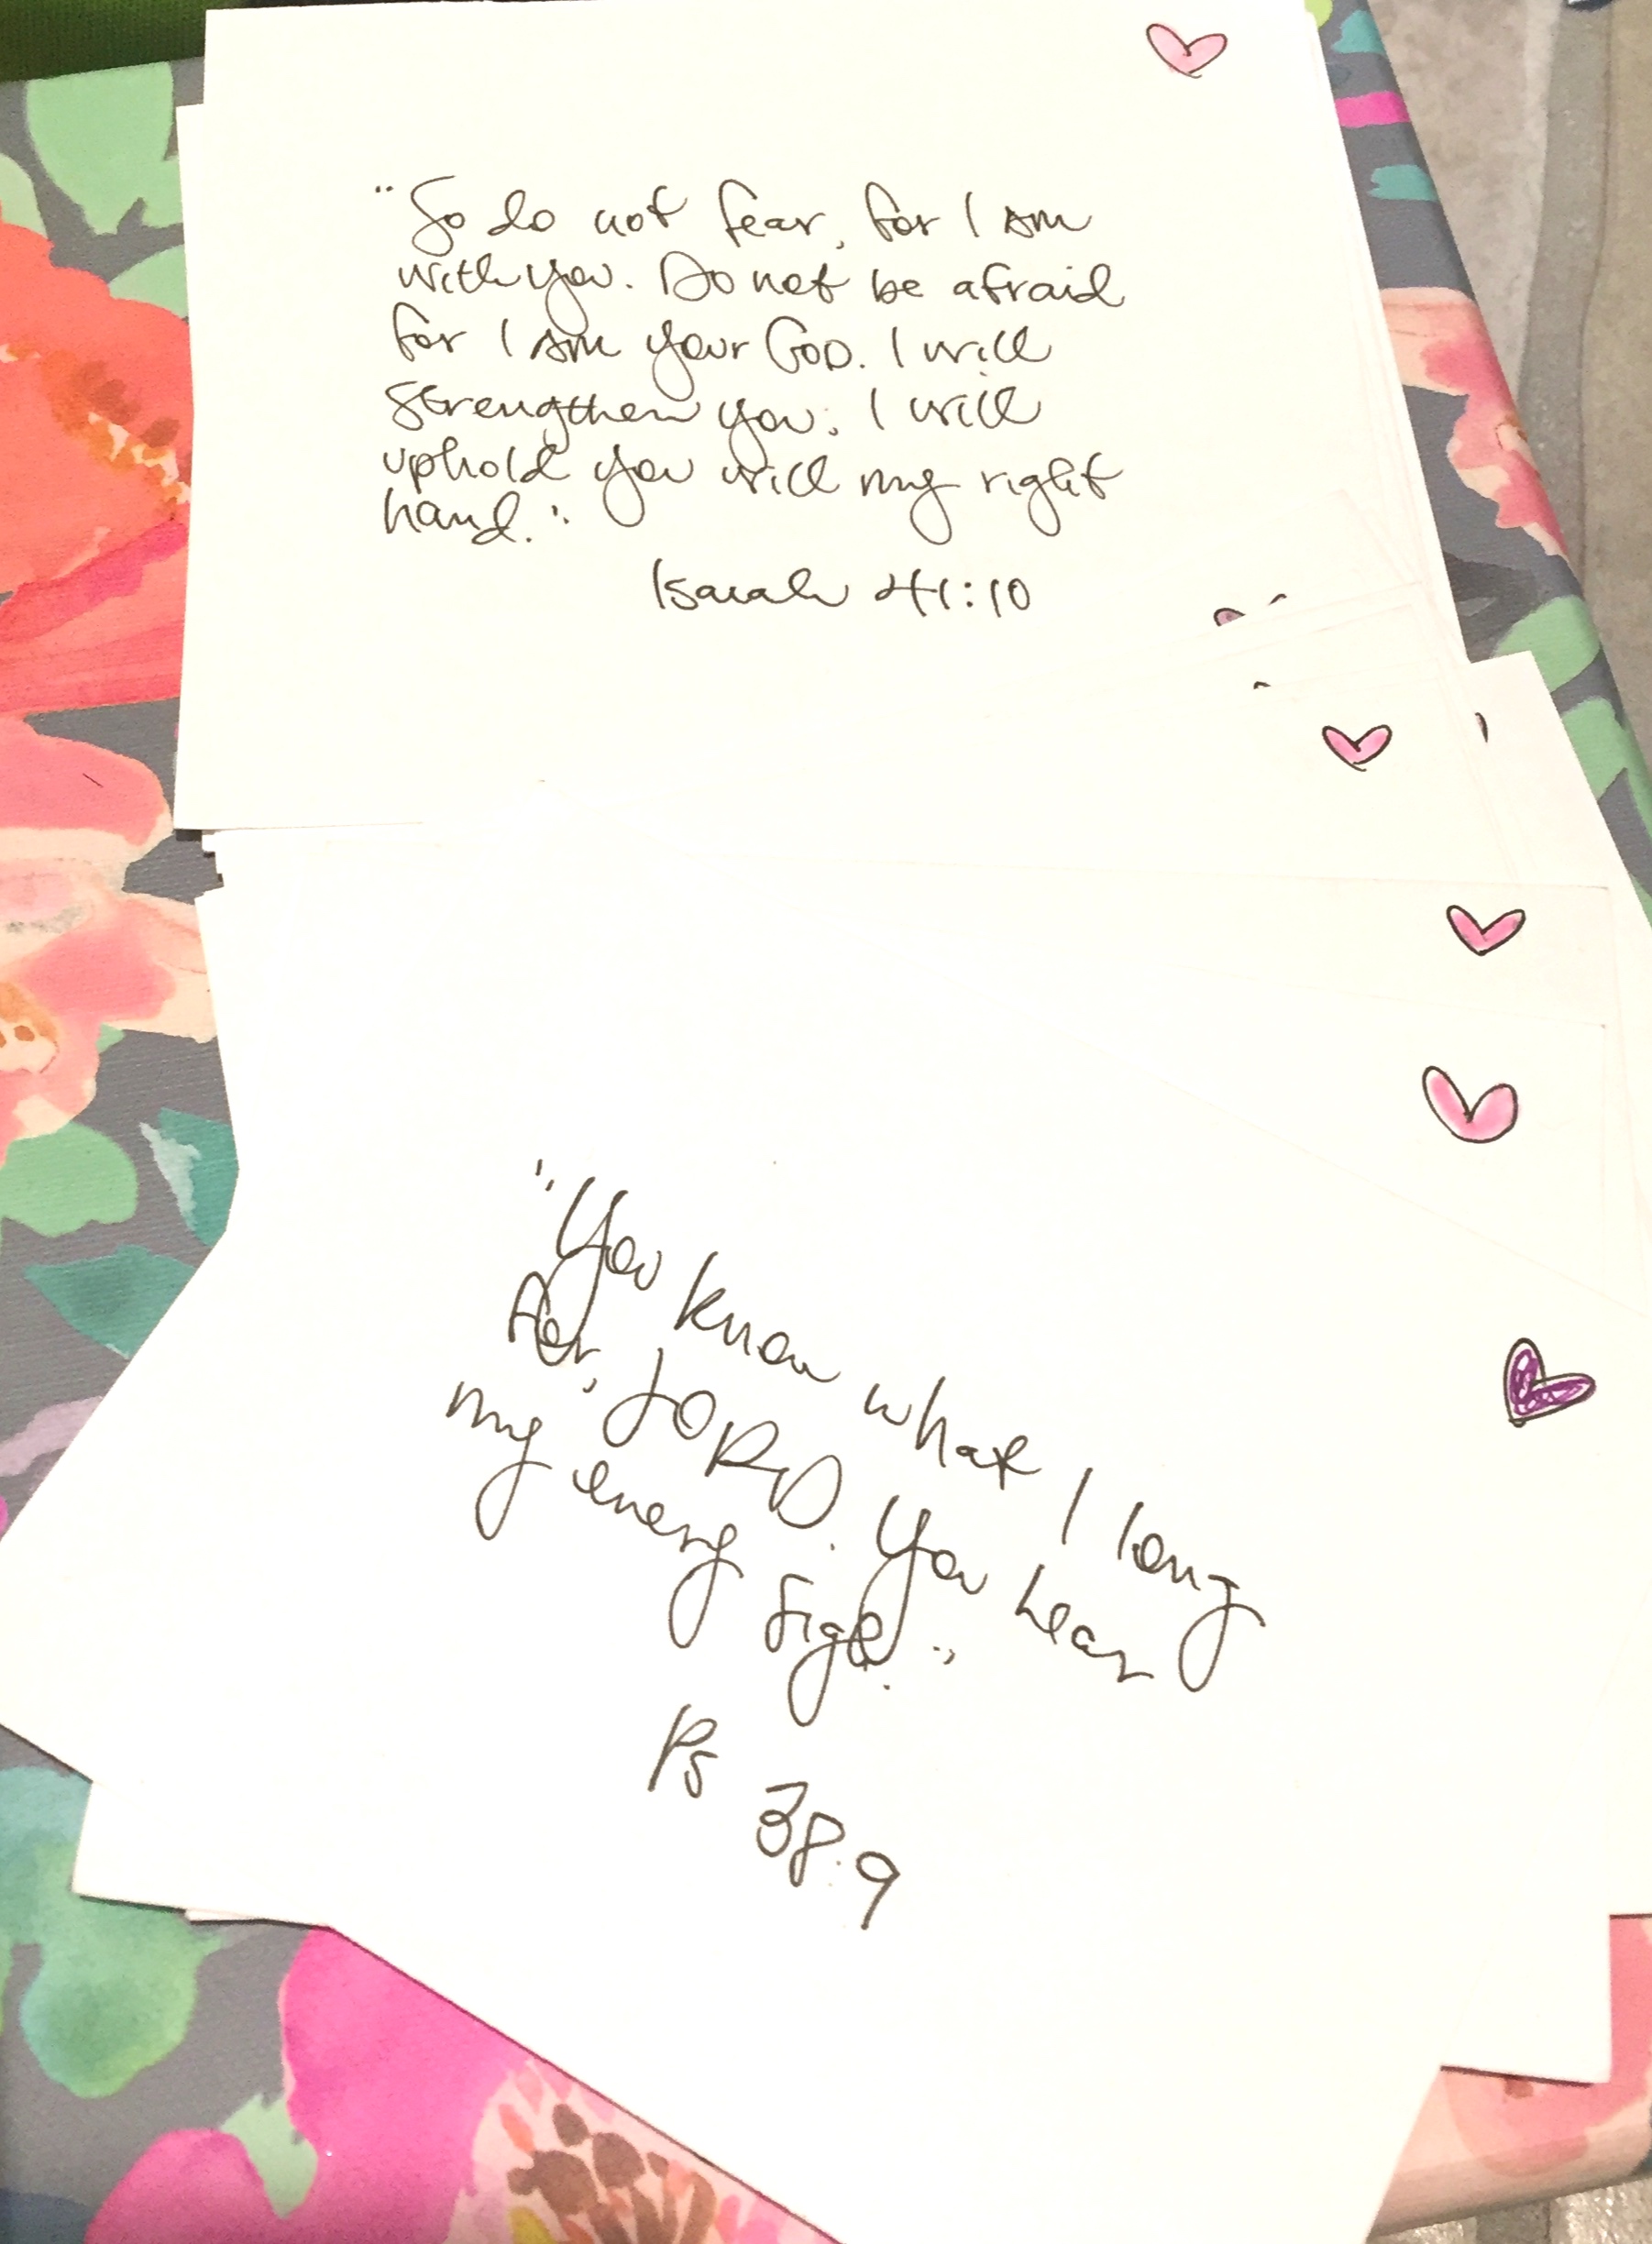 "So do not fear, for I am
with you. Do not be afraid
for I am your God. I will
strengthen you; I will
uphold you will my right
hand."
Isaiah 41:10
"You know what I long
for, LORD. You hear
my every sigh."
Ps 38:9